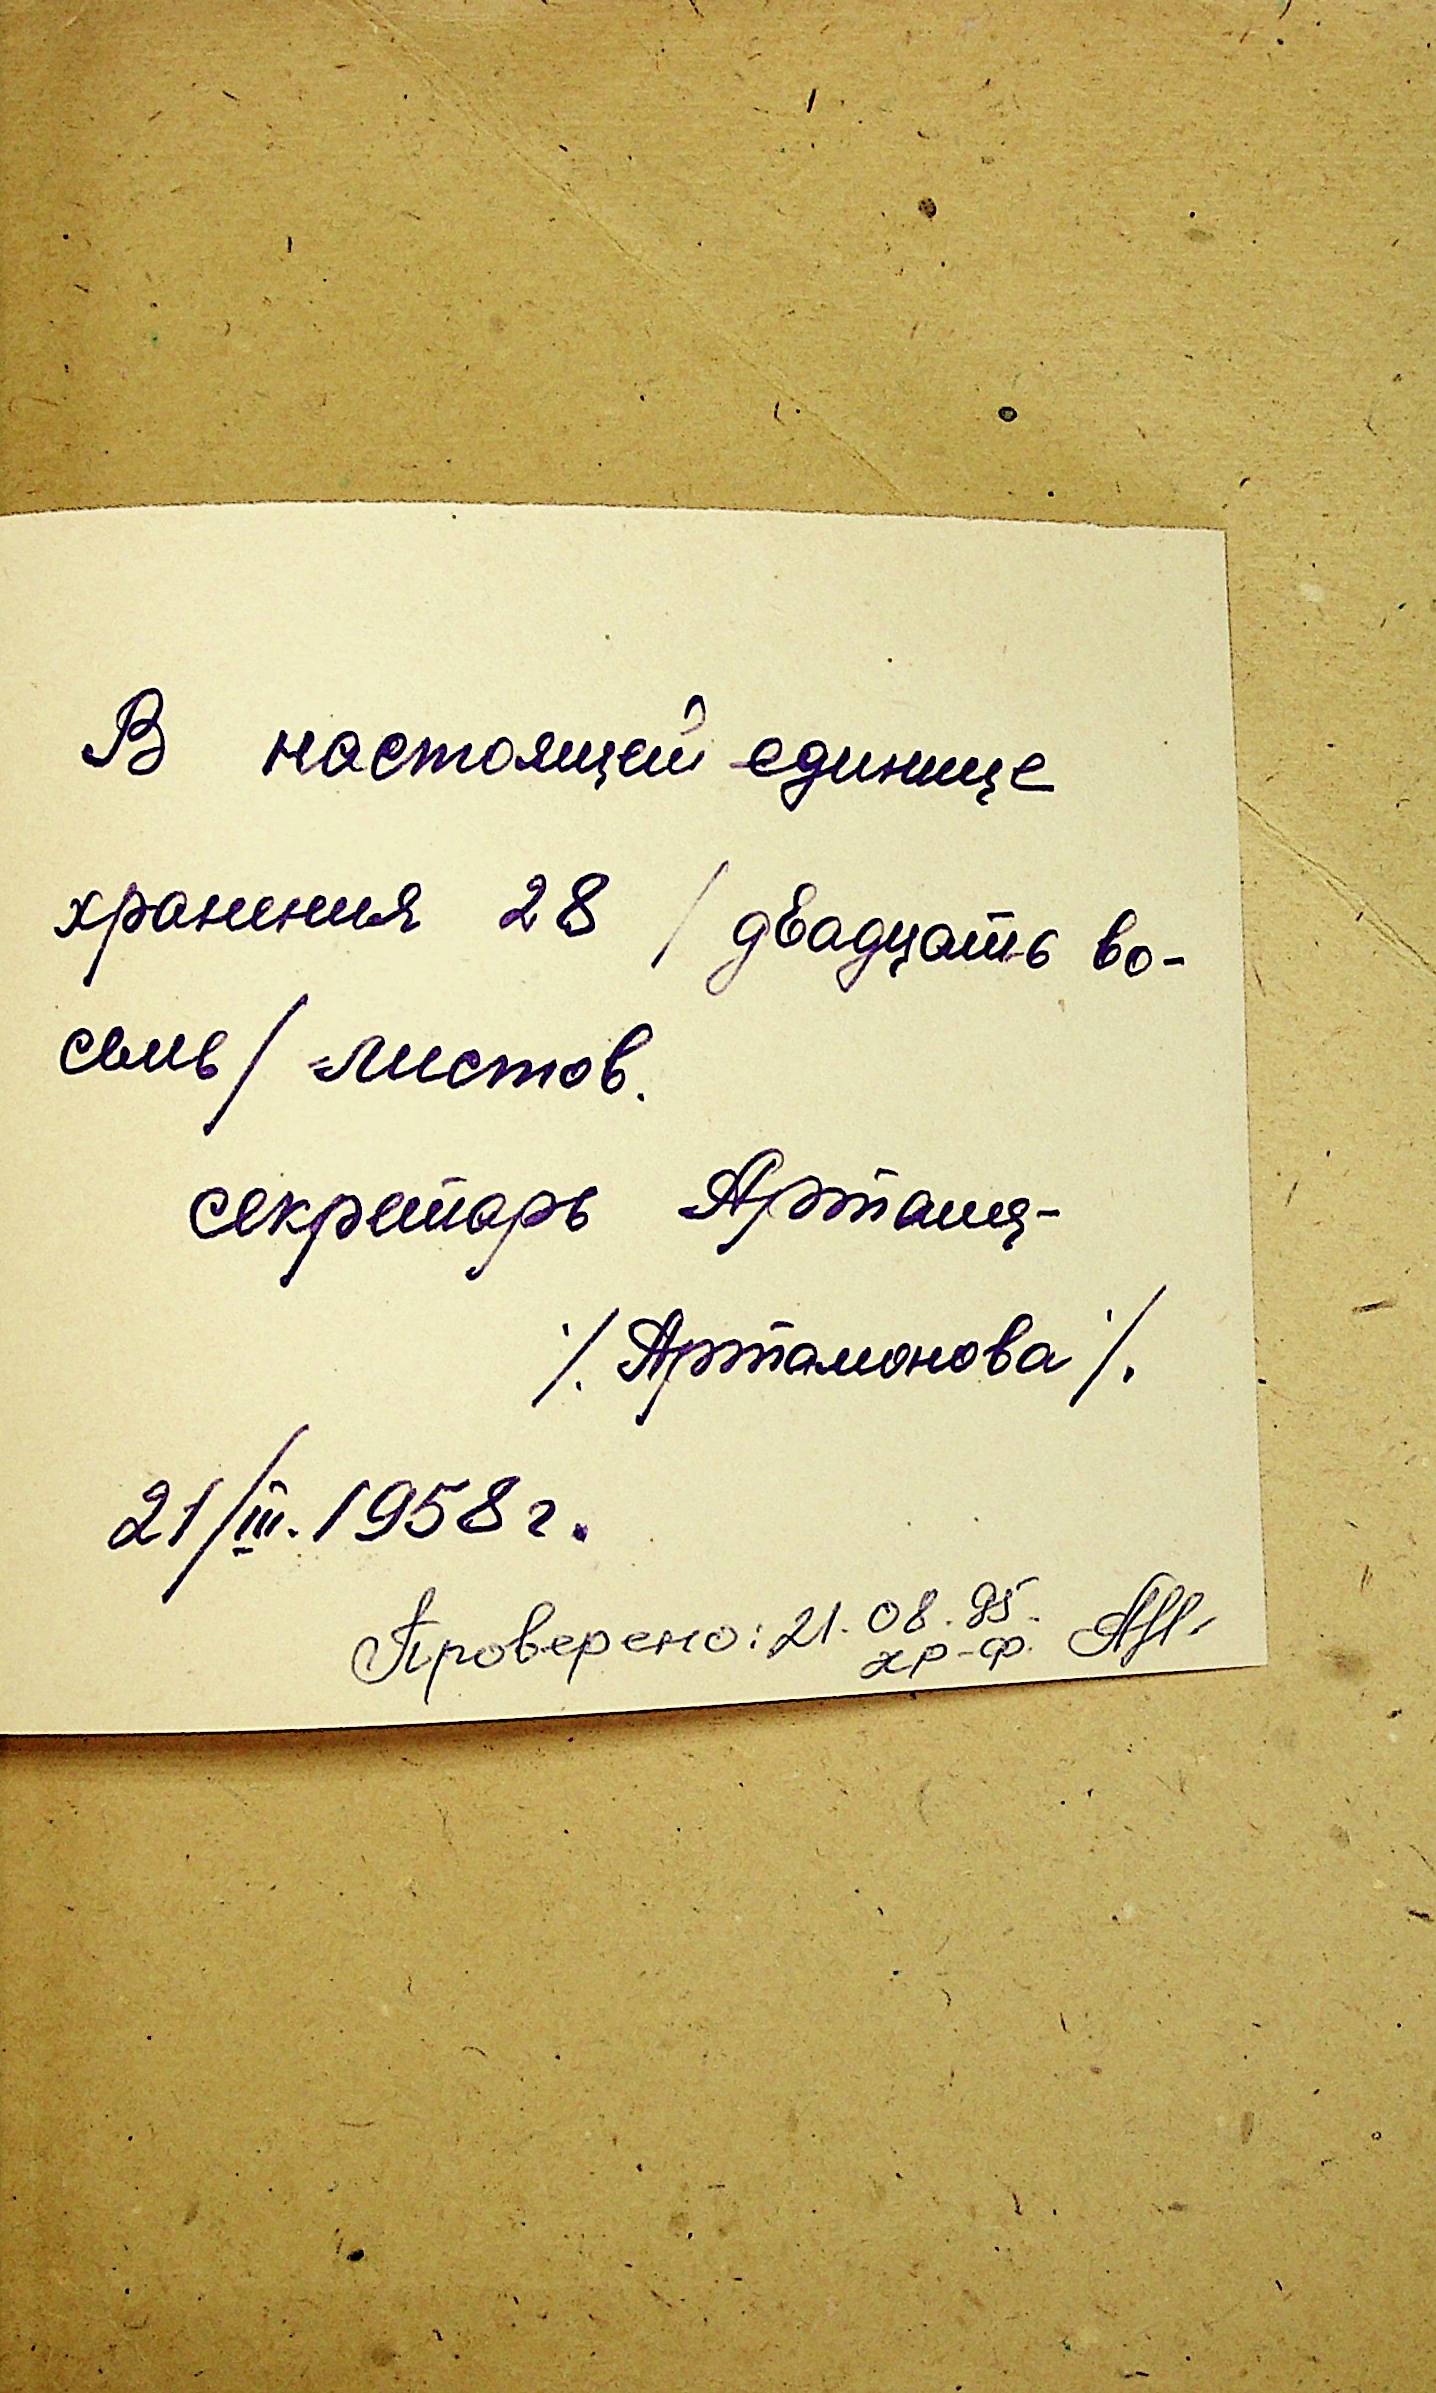 В настоящей единице
хранения 28 / двадцать во-
семь / листов.
секретарь
/. Артамонова /.
21/III. 1958 г.
Проверено: 21. 08. 95.
хр-ф.